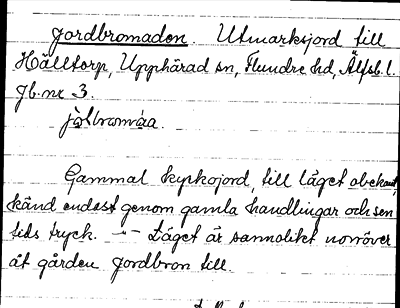 Jordbromaden. Utmarksjord till
Hälltorp, Upphärad sn, Flundre hd, Älfsb. l.
Jb. nr 3.
Gammal kyrkojord, till läget obekant,
känd endast genom gamla handlingar och sen
tids tryck. — Läget är sannolikt norröver
åt gården Jordbron till.